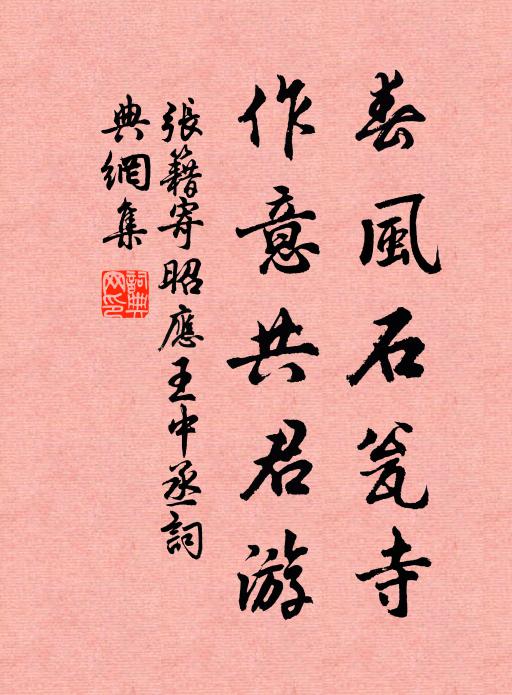 春風石瓮寺
作意共君游
張籍寄昭應王中丞詞
典網集
詞典网印